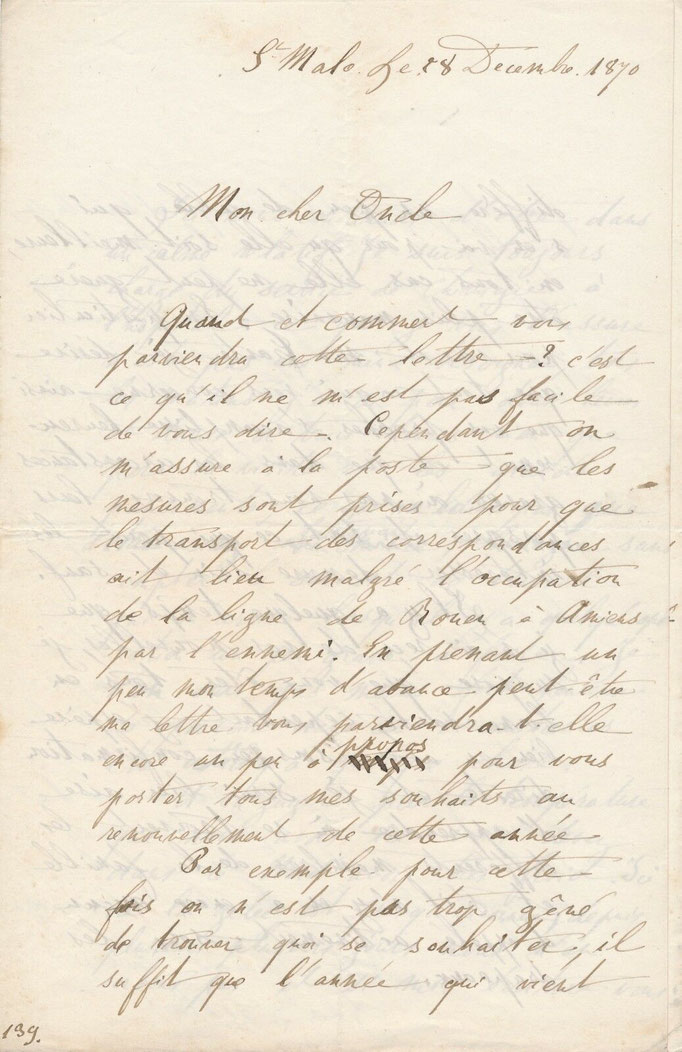 St Malo. Le 28 Décembre. 1870
Mon cher Oncle
Quand et comment vous
parviendra cette lettre -? c'est
ce qu'il ne m'est pas facile
de vous dire -. Cependant on
m'assure à la poste que les
mesures sont prises pour que
le transport des correspondances
ait lieu malgré l'occupation
de la ligne de Rouen à Amiens
par l'ennemi. En prenant un
peu mon temps d'avance peut-être
ma lettre vous parviendra-t-elle
encore un peu à propos pour vous
porter tous mes souhaits au
renouvellement de cette année
Par exemple pour cette
fois on n'est pas trop gêné
de trouver quoi se souhaiter, il
suffit que l'année qui vient
139.